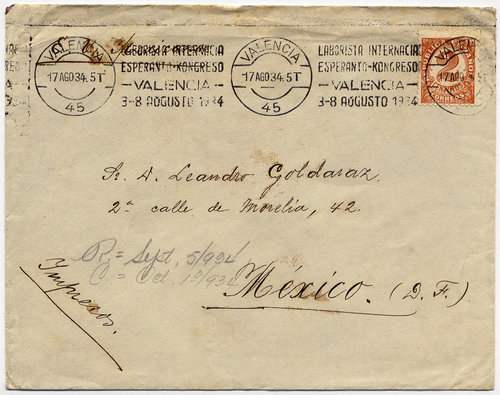 VALENCIA
17 AGO 34. 5T
45
LABORISTA INTERNACIA
ESPERANTO-KONGRESO
—VALENCIA—
3-8 AOGUSTO 1934
VALENCIA
17 AGO 34. 5T
45
LABORISTA INTERNACIA
ESPERANTO-KONGRESO
—VALENCIA—
3-8 AOGUSTO 1934
VALEN
17 AGO 34. 5T
Sr. D. Leandro Goldaraz
2ª calle de Morelia, 42.
R = Sept. 5/934
C = Oct. 1º/934
Impresos.
México. (D. F.)